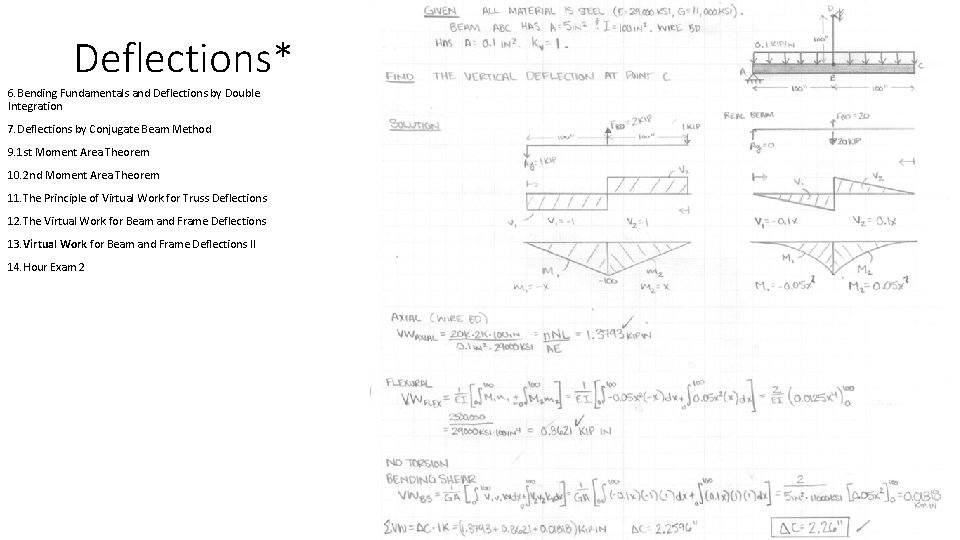 Deflections*
6. Bending Fundamentals and Deflections by Double
Integration
7. Deflections by Conjugate Beam Method
9. 1st Moment Area Theorem
10. 2nd Moment Area Theorem
11. The Principle of Virtual Work for Truss Deflections
12. The Virtual Work for Beam and Frame Deflections
13. Virtual Work for Beam and Frame Deflections II
14. Hour Exam 2
GIVEN ALL MATERIAL IS STEEL (E=29000 KSI, G=11,000 KSI).
BEAM ABC HAS A=5IN² & I=100IN⁴. WIRE BD
HAS A=0.1 IN². Kv=1.
FIND THE VERTICAL DEFLECTION AT POINT C
D
100"
0.1 KIP/IN
A
B
C
100" 100"
SOLUTION
100" FBD=2KIP 100" 1KIP
Ay=1KIP
V₁ V₁=-1 V₂=1 V₂
M₁ -100 M₂
m₁=-x m₂=x
REAL BEAM FBD=20
Ay=0 20KIP
V₁ V₂
V₁=-0.1x V₂=0.1x
M₁ M₂
M₁=-0.05x² M₂=0.05x²
AXIAL (WIRE BD)
VWAXIAL = 20K·2K·100IN / 0.1IN²·29000KSI = nNL / AE = 1.3793 KIP IN ✓
FLEXURAL
VWFLEX = 1/EI [₀∫¹⁰⁰M₁m₁ + ₀∫¹⁰⁰M₂m₂] = 1/EI [₀∫¹⁰⁰-0.05x²(-x)dx + ₀∫¹⁰⁰0.05x²(x)dx] = 2/EI (0.0125x⁴)₀¹⁰⁰
= 2500,000 / 29000KSI·100IN⁴ = 0.8621 KIP IN ✓
NO TORSION
BENDING SHEAR
VWBS = 1/GA [₀∫¹⁰⁰V₁v₁kvdx + ₀∫¹⁰⁰V₂v₂kvdx] = 1/GA [₀∫¹⁰⁰(-0.1x)(-1)(1)dx + ₀∫¹⁰⁰(0.1x)(1)(1)dx] = 2 / 5IN²·11000KSI [0.05x²]₀¹⁰⁰ = 0.01818 KIP·IN
ΣVW = ΔC·1K = (1.3793 + 0.8621 + 0.01818) KIP·IN ΔC = 2.2596" ΔC = 2.26" ✓